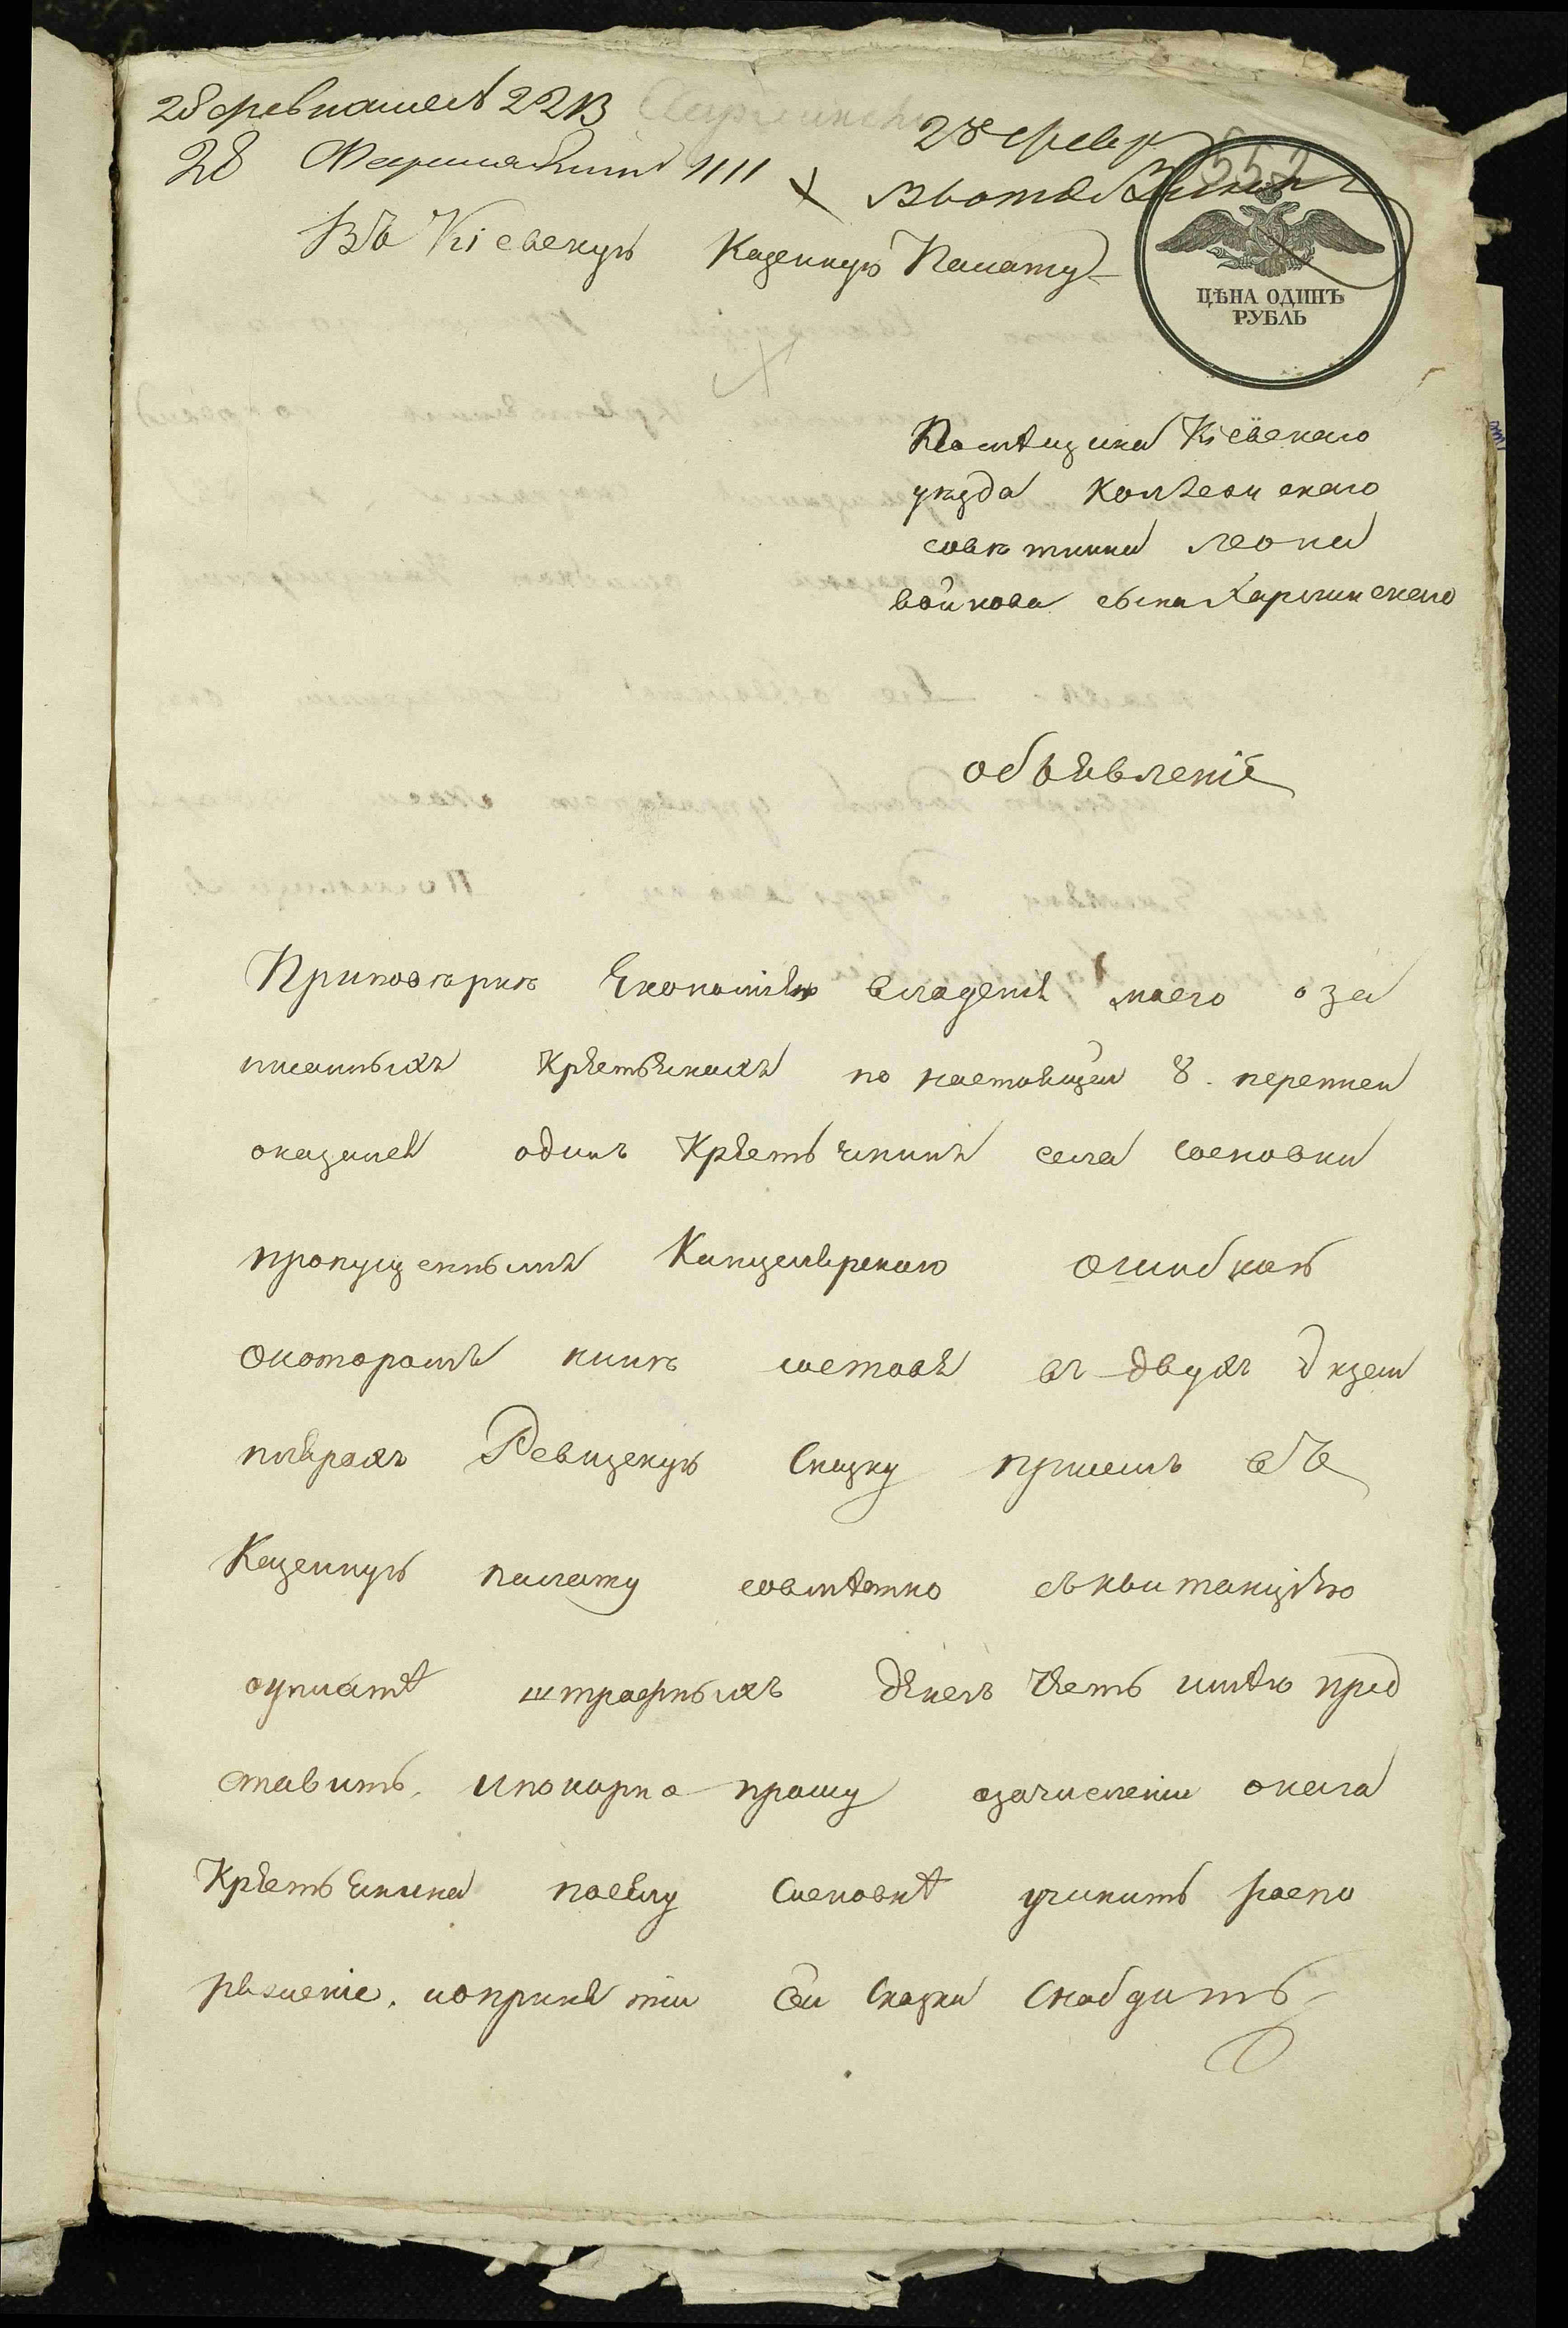 28 февр
552
28
Въ Кіевскую Казенную Палату
ЦѢНА ОДИНЪ
РУБЛЬ
Помѣщика Кіевскаго
уѣзда Колѣсскаго
совѣтника Леона
войкова сына Харлинскаго
объявленіе
Приповѣркѣ Економіею владѣнія моего о за
писанныхъ Крѣстьянахъ по настоящей 8. переписи
оказался одинъ Крѣстьянинъ села Сосновки
пропущеннымъ Канцелярскою ошибкою
Окоторомъ нинѣ составя въ двухъ Экзем
плярахъ Ревизскую Сказку при семъ въ
Казенную палату совмѣстно съквитанціею
оуплатѣ штрафныхъ дѣнегъ Честь имѣю пред
ставить, ипокорно прошу озачисленіи онаго
Крѣстьянина поселу Сосновкѣ учинить распо
ряженіе, ипопринятіи сей Сказки Снабдить